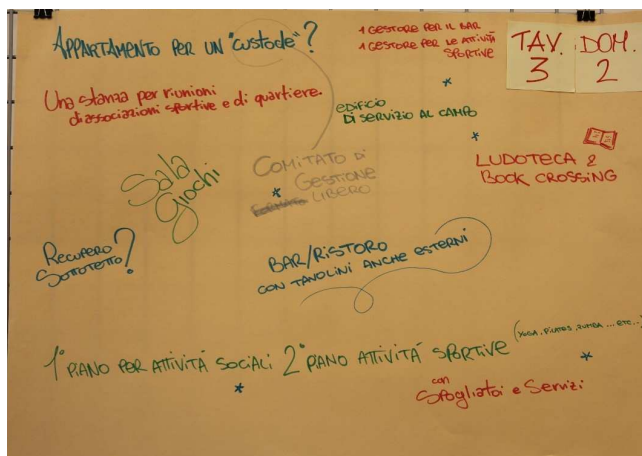 APPARTAMENTO PER UN "CUSTODE"?
1 GESTORE PER IL BAR
1 GESTORE PER LE ATTIVITÀ
SPORTIVE
TAV.
3
DOM.
2
Una stanza per riunioni
di associazioni sportive e di quartiere.
EDIFICIO
DI SERVIZIO AL CAMPO
Sala
Giochi
COMITATO DI
GESTIONE
LIBERO
LUDOTECA &
BOOK CROSSING
RECUPERO
SOTTOTETTO?
BAR/RISTORO
CON TAVOLINI ANCHE ESTERNI
1° PIANO PER ATTIVITÀ SOCIALI
2° PIANO ATTIVITÀ SPORTIVE
(YOGA, PILATES, ZUMBA ... ETC..)
con
Spogliatoi e Servizi